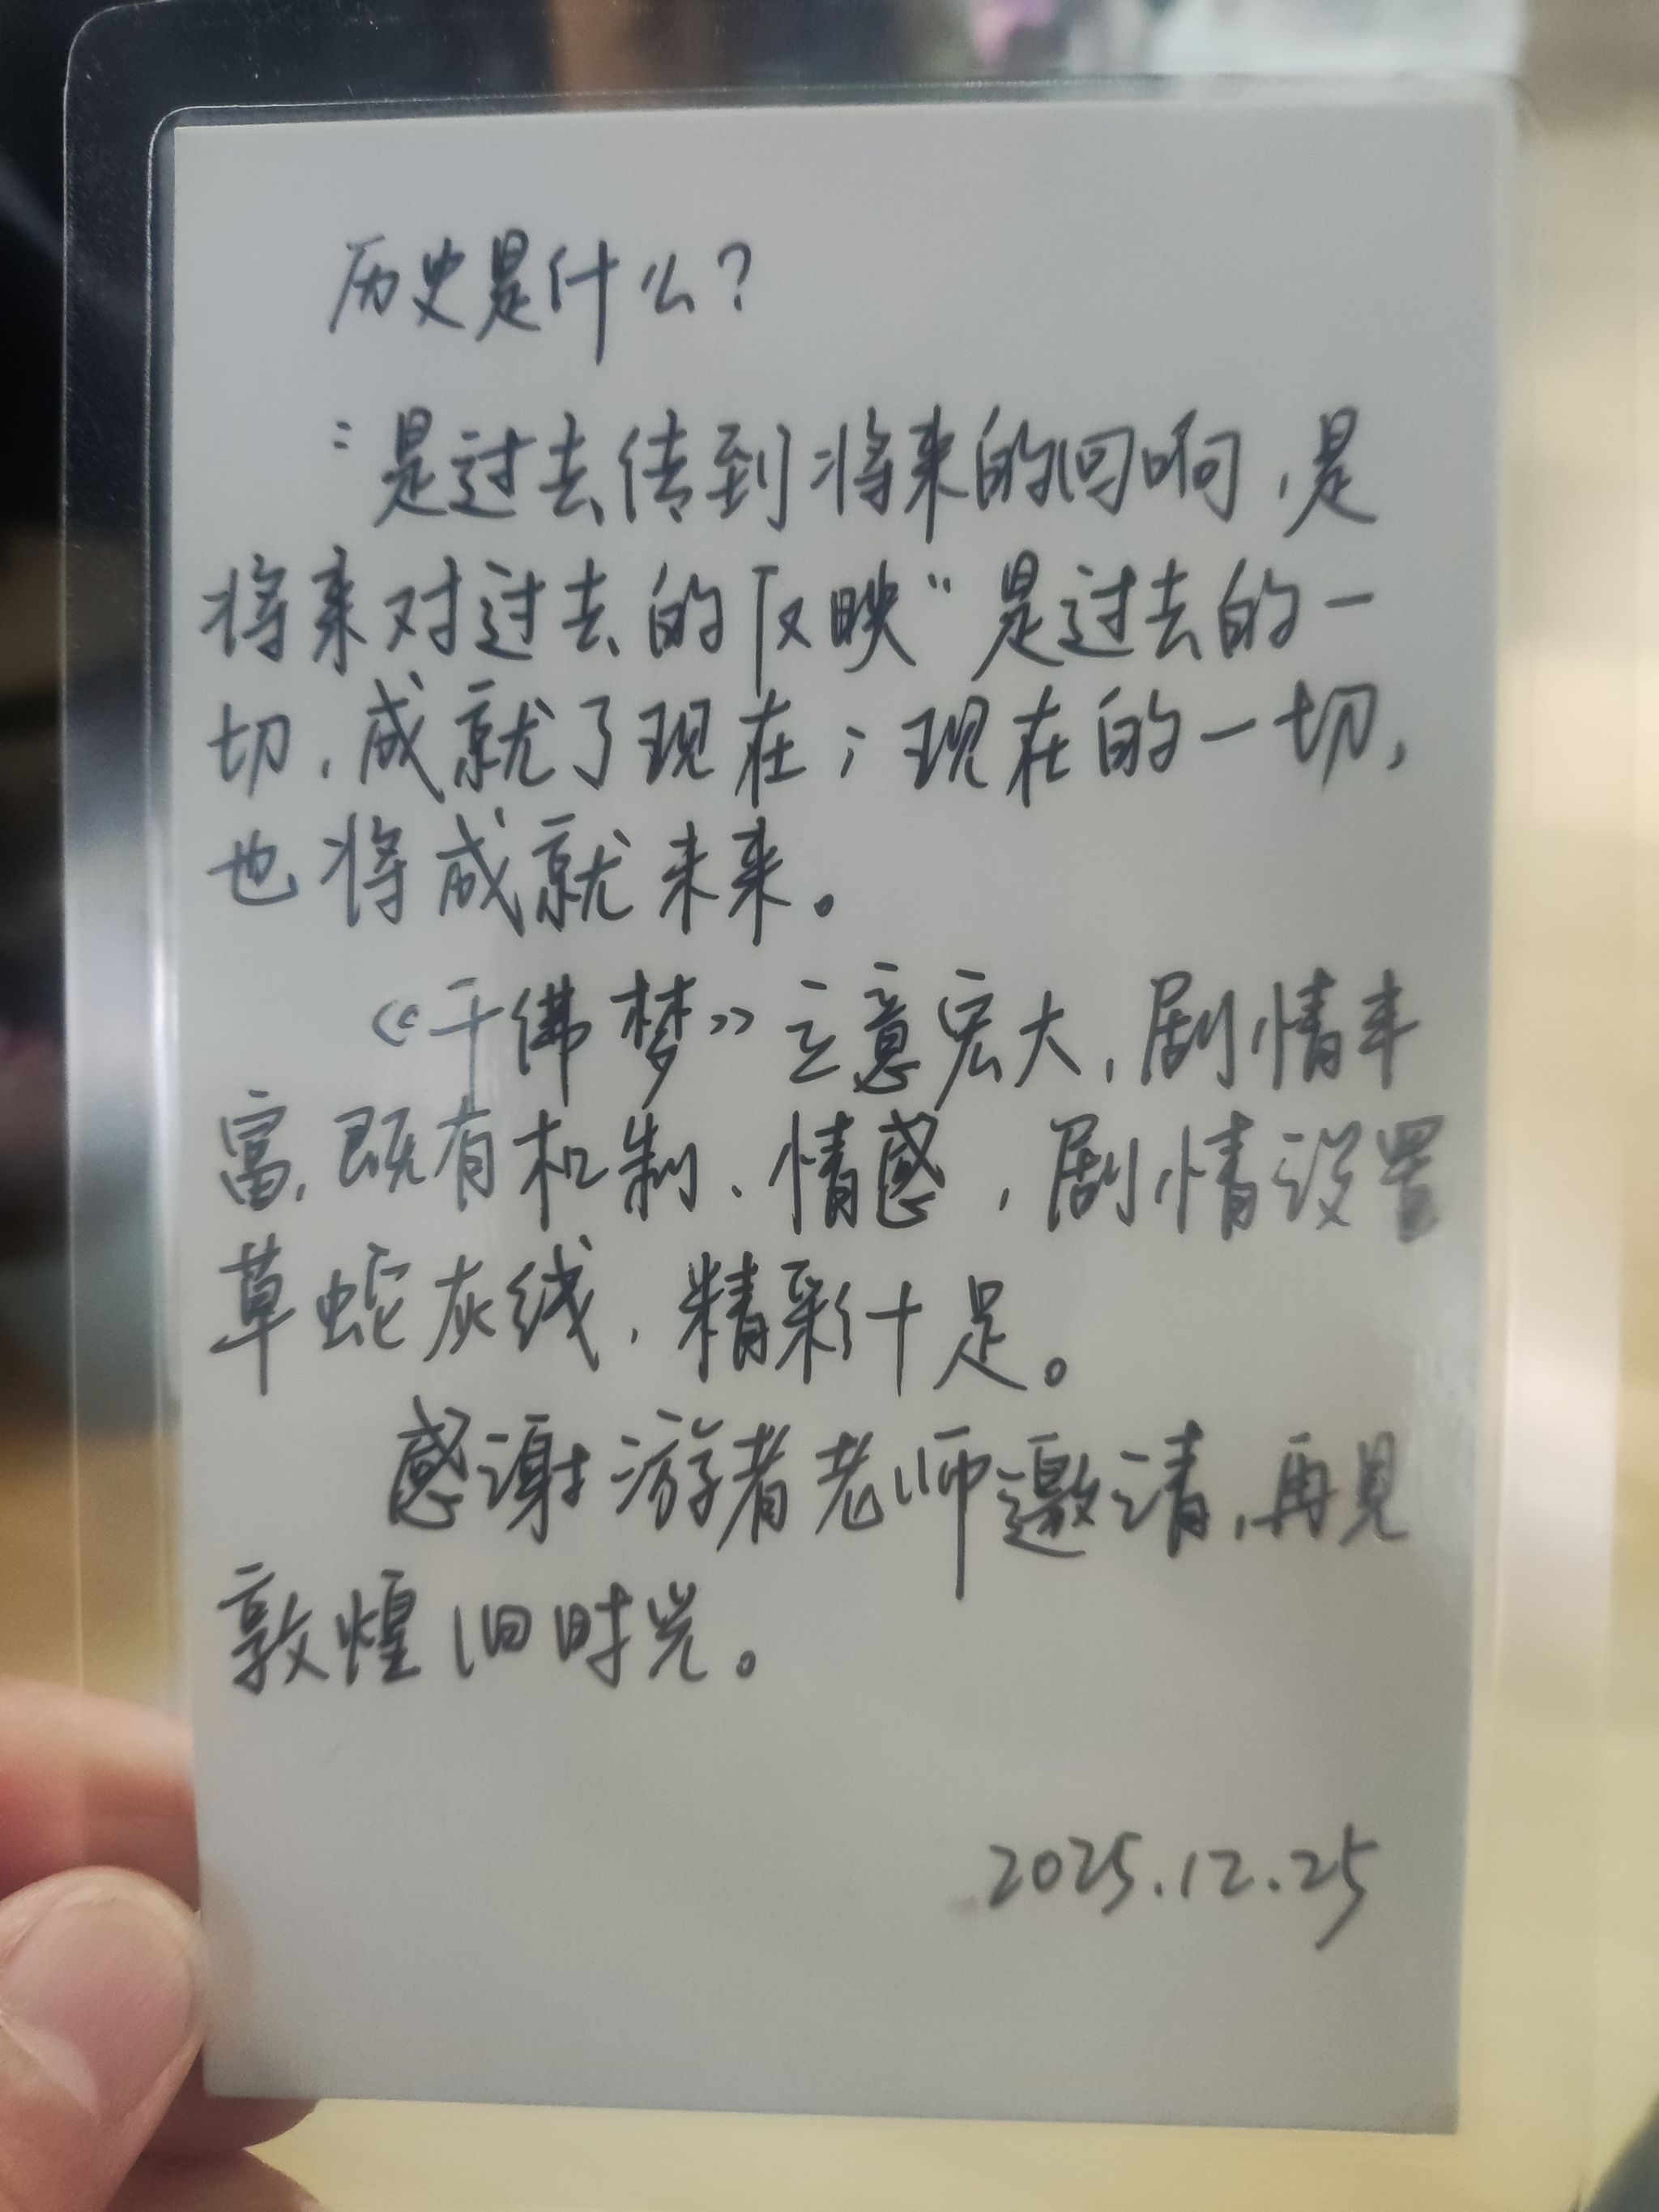 历史是什么?
“是过去传到将来的回响,是
将来对过去的反映”是过去的一
切,成就了现在;现在的一切,
也将成就未来。
《千佛梦》立意宏大,剧情丰
富,既有机制、情感,剧情设置
草蛇灰线,精彩十足。
感谢游者老师邀请,再见
敦煌旧时光。
2025.12.25